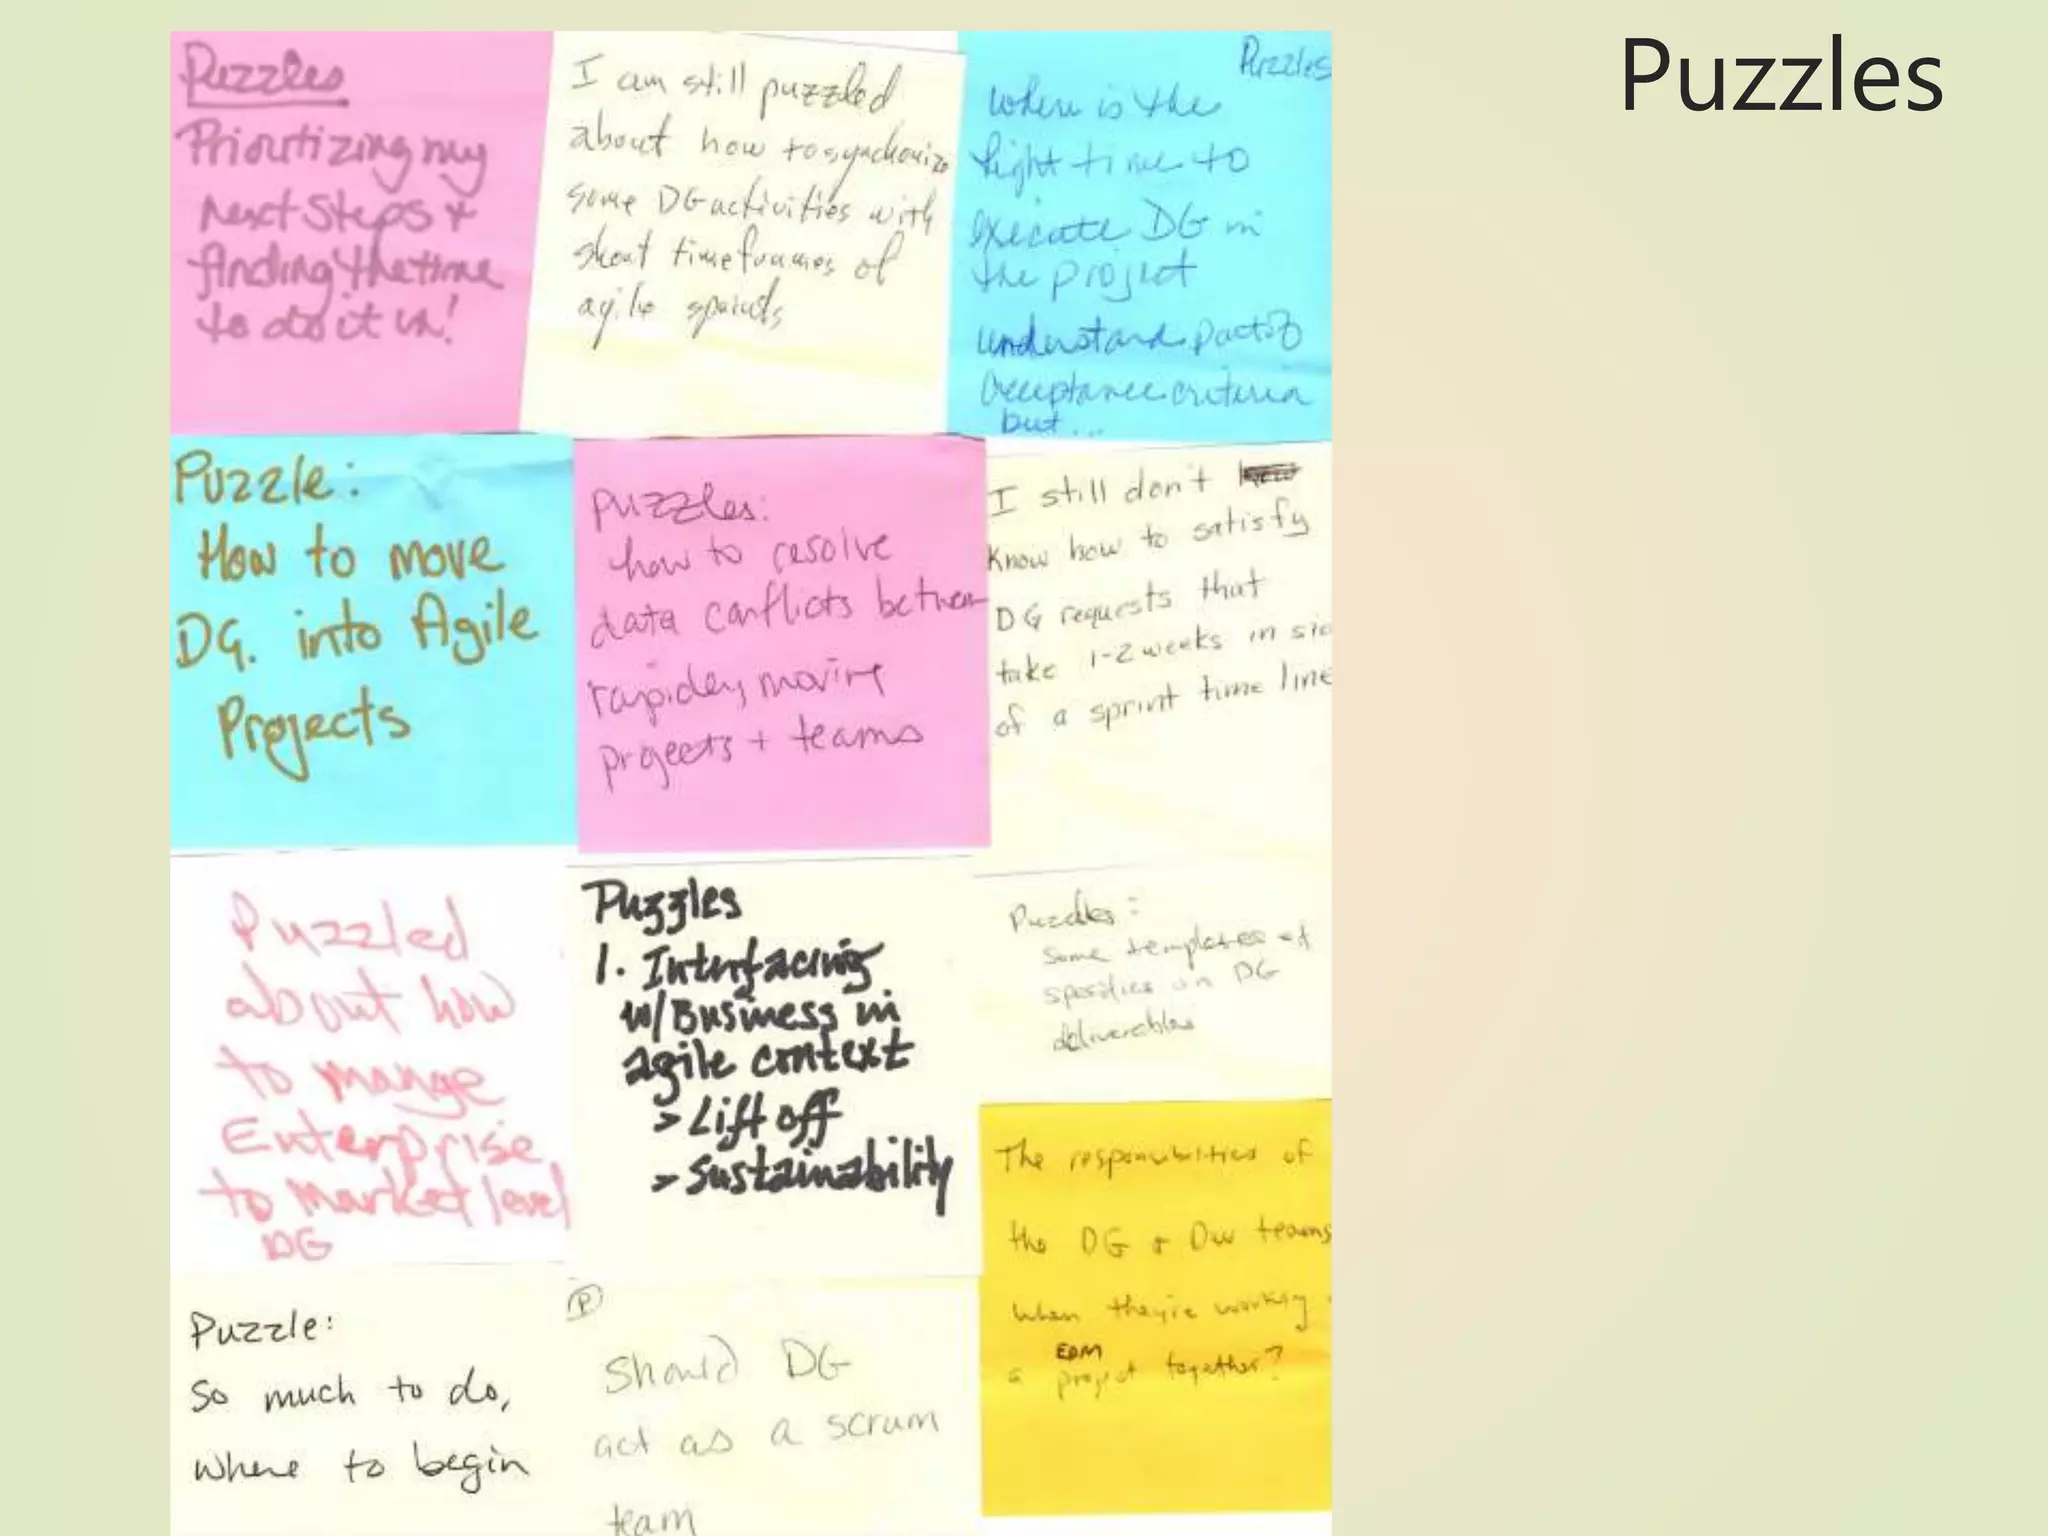 Puzzles
Puzzles
Prioritizing my
next steps +
finding the time
to do it in!
I am still puzzled
about how to synchonize
some DG activities with
short timeframes of
agile sprints
Puzzles
where is the
right time to
execute DG in
the project
understand part of
acceptance criteria
but...
Puzzle:
How to move
DG. into Agile
Projects
puzzles:
how to resolve
data conflicts between
rapidley moving
projects + teams
I still don't
know how to satisfy
DG requests that
take 1-2 weeks in sid
of a sprint time line
Puzzled
about how
to mange
Enterprise
to market level
DG
Puzzles
1. Interfacing
w/Business in
agile context
> Lift off
> Sustainability
Puzzles:
some templates
on DG
deliverables
The responsibilities of
the DG + DW teams
when they're working
a EDM project together?
Puzzle:
So much to do,
where to begin
P
Should DG
act as a scrum
team